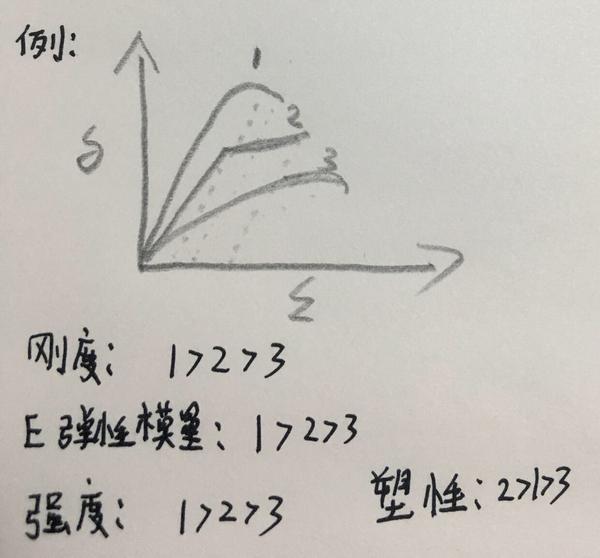 例:
1
2
3
δ
Σ
刚度: 1>2>3
E 弹性模量: 1>2>3
强度: 1>2>3
塑性: 2>1>3